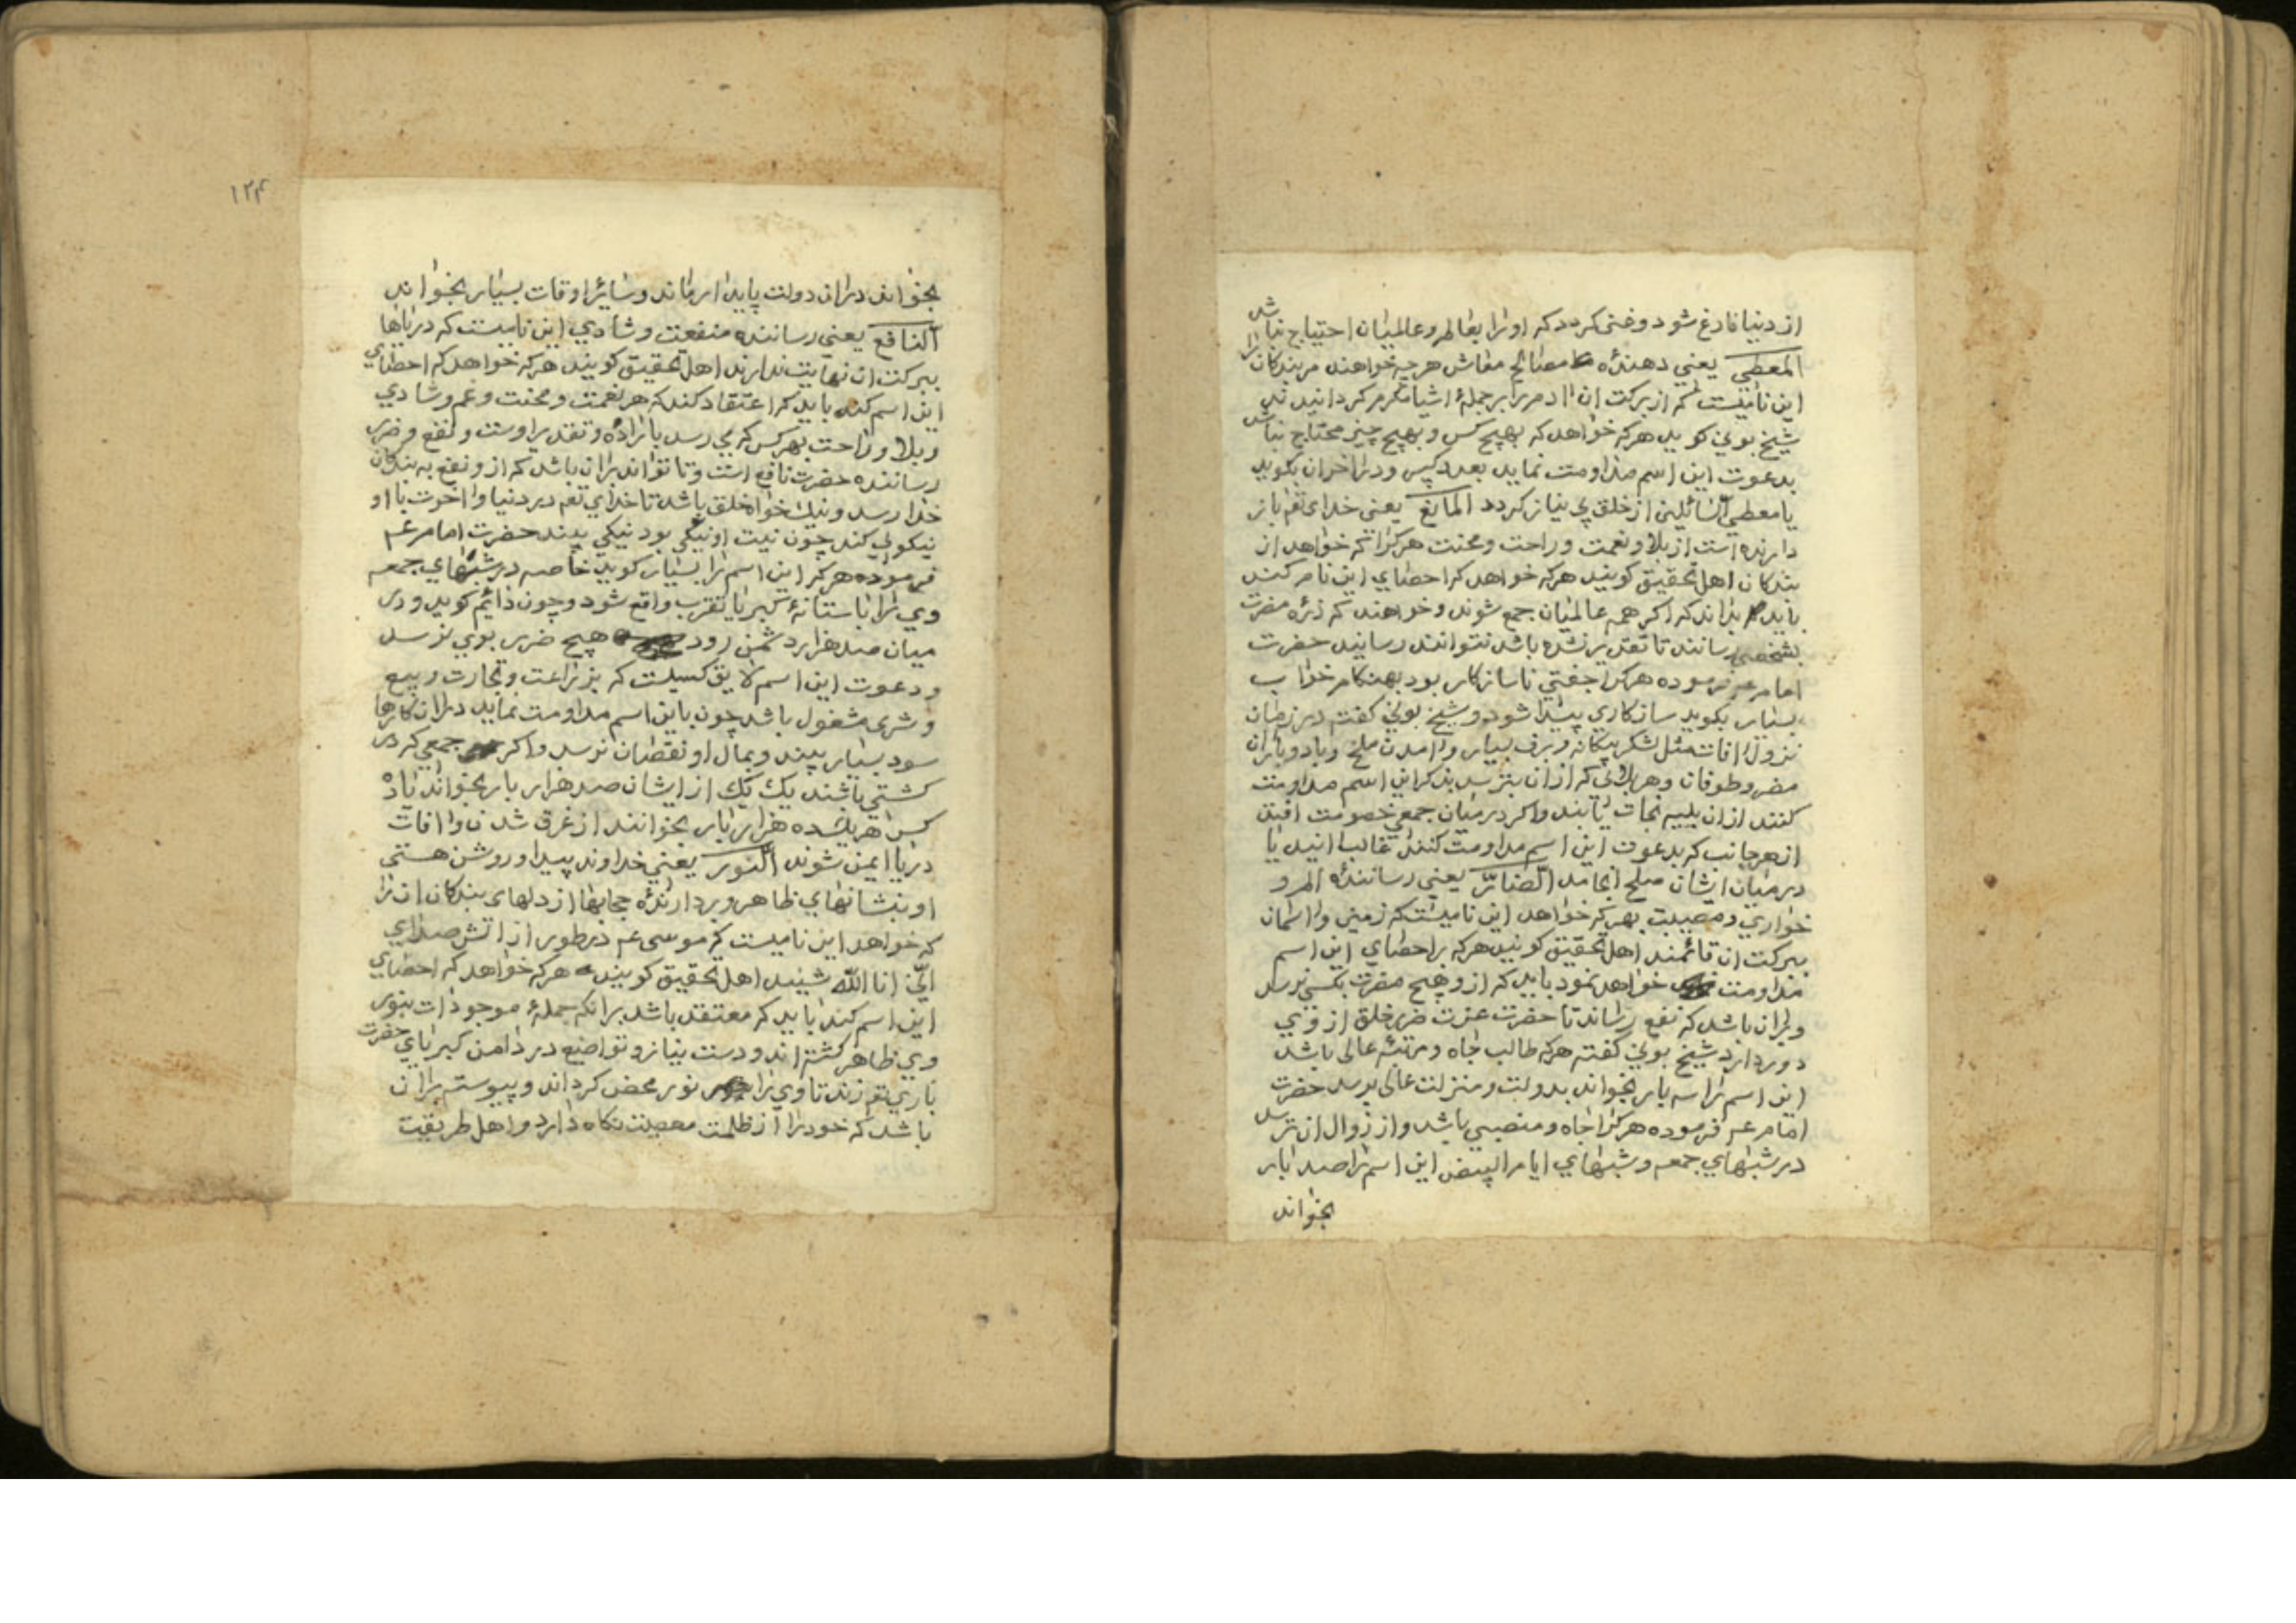 از دنیا فارغ شود و غنی کردد که او را بعالم و عالمیان احتیاج نباشد
المعطی یعنی دهندهٔ مصالح معاش هرچه خواهند مر بندکان را
این نامیست که از برکت آن آدم را بر جملهٔ اشیا مکرم کردانیدند
شیخ بونی کوید هرکه خواهد که بهیچ کس و بهیچ چیز محتاج نباشد
بدعوت این اسم مداومت نماید بعدد کبیر و در آخر آن بکوید
یا معطی السائلین از خلق بی نیاز کردد المانع یعنی خدای تع باز
دارنده است از بلا و نعمت و راحت و محنت هر کرا که خواهد از
بندکان اهل تحقیق کویند هرکه خواهد که احصای این نام کند
باید بداند که اکر همه عالمیان جمع شوند و خواهند که ذره مضرت
بشخصی رسانند تا تقدیر نشده باشد نتوانند رسانید حضرت
امام عم فرموده هر کرا جفتی ناسازکار بود بهنکام خواب
بسیار بکوید سازکاری پیدا شود و شیخ بونی کفته در زمان
نزول آفات مثل لشکر بیکانه و برف بسیار و آمدن ملخ و باد و باران
مضر و طوفان و هر بلائی که از آن بترسند بذکر این اسم مداومت
کنند از آن بلیه نجات یابند و اکر در میان جمعی خصومت افتد
از هر جانب که بدعوت این اسم مداومت کنند غالب آیند یا
در میان ایشان صلح انجامد الضارّ یعنی رسانندهٔ الم و
خواری و مصیبت بهر که خواهد این نامیست که زمین و آسمان
ببرکت آن قائمند اهل تحقیق کویند هرکه بر احصای این اسم
مداومت خواهد نمود باید که از و هیچ مضرت بکسی نرسد
و بر آن باشد که نفع رساند تا حضرت عزت ضرر خلق از وی
دور دارد شیخ بونی کفته هرکه طالب جاه و مرتبهٔ عالی باشد
این اسم را سه بار بخواند بدولت و منزلت عالی برسد حضرت
امام عم فرموده هر کرا جاه و منصبی باشد و از زوال آن ترسد
در شبهای جمعه و شبهای ایام البیض این اسم را صد بار
بخواند
۱۲۴
بخواند در آن دولت پایدار ماند و سائر اوقات بسیار بخواند
النافع یعنی رساننده منفعت و شادی این نامیست که دریاها
ببرکت آن نهایت ندارند اهل تحقیق کویند هرکه خواهد که احصای
این اسم کند باید که اعتقاد کند که هر نعمت و محنت و غم و شادی
و بلا و راحت بهر کس که می رسد باراده و تقدیر اوست و نفع و ضرر
رساننده حضرت نافع است و تا تواند بر آن باشد که از و نفع به بندکان
خدا رسد و نیک خواه خلق باشد تا خدای تع در دنیا و آخرت با او
نیکوئی کند چون نیت او نیکی بود نیکی بیند حضرت امام عم
فرموده هر که این اسم را بسیار کوید خاصه در شبهای جمعه
وی را بآستانهٔ کبریا تقرب واقع شود و چون دائم کوید و در
میان صد هزار دشمن رود هیچ ضرر بوی نرسد
و دعوت این اسم لایق کسیست که بزراعت و تجارت و بیع
و شری مشغول باشد چون باین اسم مداومت نماید در آن کارها
سود بسیار بیند و بمال او نقصان نرسد و اکر جمعی که در
کشتی باشند یک یک از ایشان صد هزار بار بخواند یا ده
کس هر یک ده هزار بار بخوانند از غرق شدن و آفات
دریا ایمن شوند النور یعنی خداوند پیدا و روشن هستی
او بنشانهای ظاهر و بردارندهٔ حجابها از دلهای بندکان آن را
که خواهد این نامیست که موسی عم در طور از آتش صدای
انّی انا الله شنید اهل تحقیق کویند هرکه خواهد که احصای
این اسم کند باید که معتقد باشد بر آنکه جملهٔ موجودات بنور
وی ظاهر کشته اند و دست نیاز و تواضع در دامن کبریای حضرت
باری تع زند تا وی را نور محض کرداند و پیوسته بر آن
باشد که خود را از ظلمت معصیت نکاه دارد و اهل طریقت